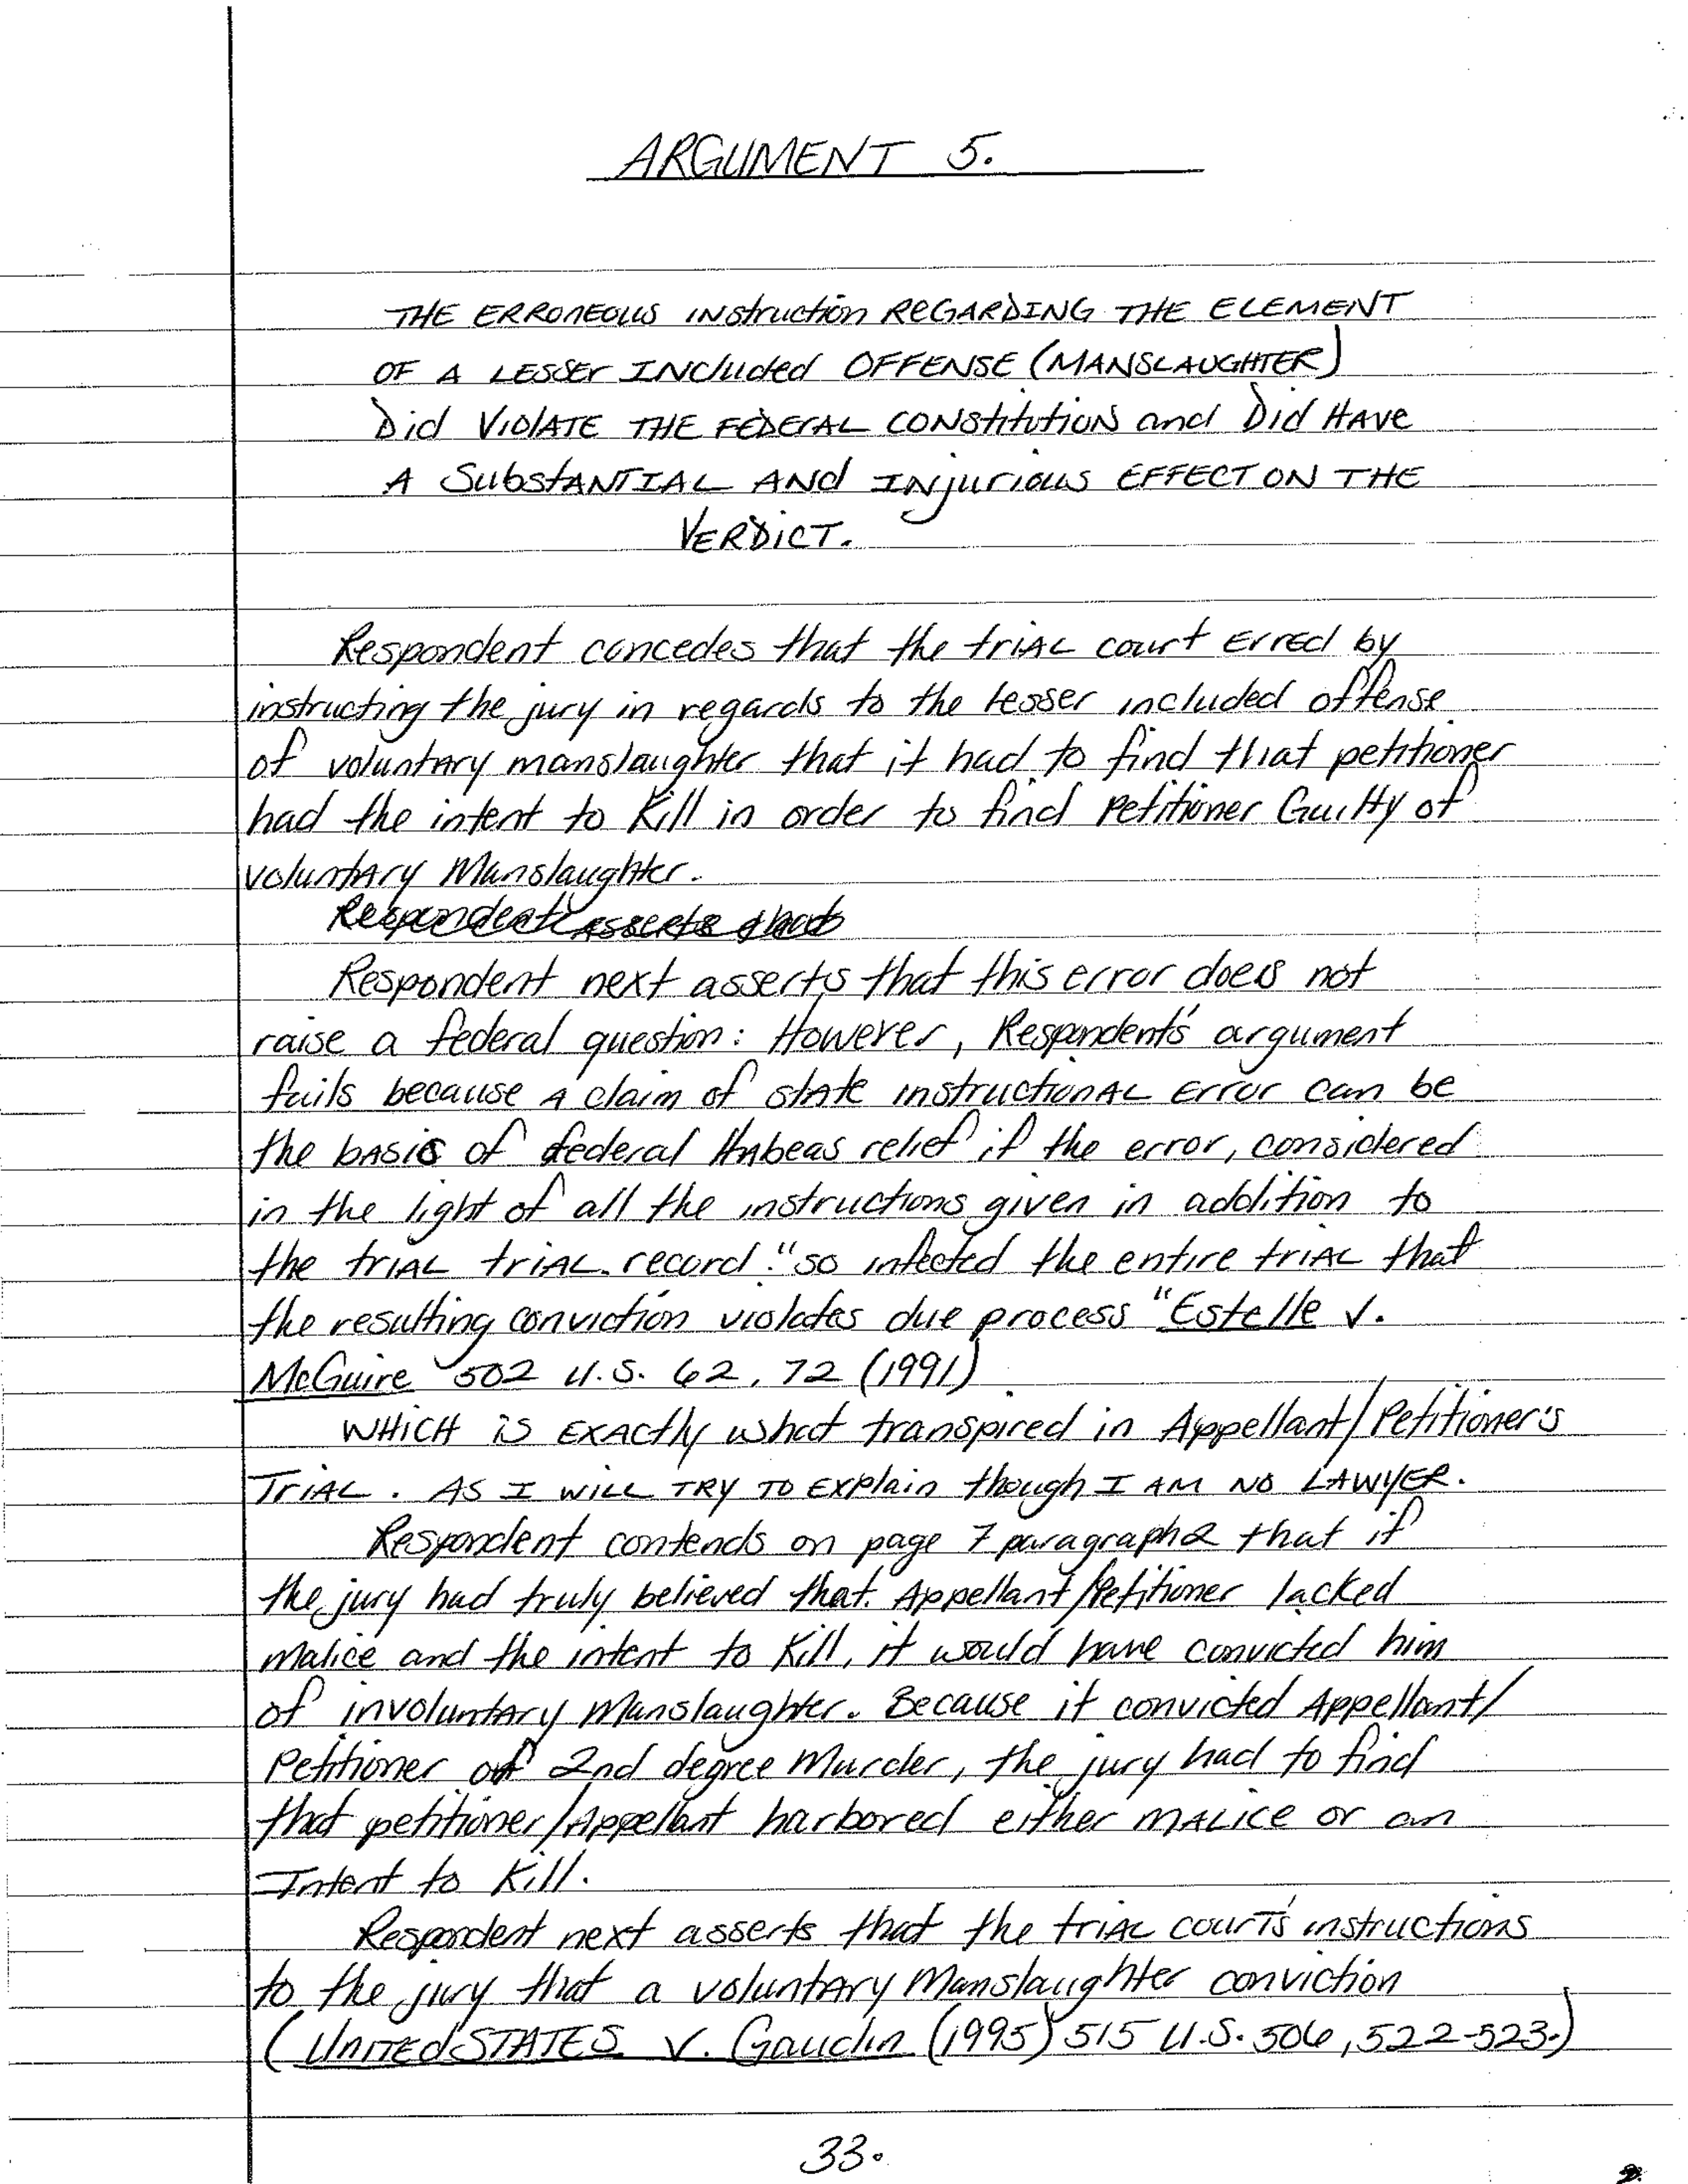 ARGUMENT 5.
THE ERRONEOUS INstruction REGARDING THE ELEMENT
OF A LESSER INCluded OFFENSE (MANSLAUGHTER)
Did VIOlATE THE FEDERAL CONStitutiON and Did HAVE
A SubStANTIAL ANd INjurious EFFECT ON THE
VERDICT.
Respondent concedes that the triAL court Erred by
instructing the jury in regards to the lesser included offense
of voluntary manslaughter that it had to find that petitioner
had the intent to Kill in order to find Petitioner Guilty of
voluntary Manslaughter.
Respondent asserts that
Respondent next asserts that this error does not
raise a federal question: However, Respondent's argument
fails because A claim of state instructionAL Error can be
the basis of federal Habeas relief if the error, considered
in the light of all the instructions given in addition to
the triAL triAL record "so infected the entire triAL that
the resulting conviction violates due process" Estelle v.
McGuire 502 U.S. 62, 72 (1991)
WHICH is EXACtly what transpired in Appellant/Petitioner's
TriAL. AS I WILL TRY TO EXplain though I AM NO LAWYER.
Respondent contends on page 7 paragraph 2 that if
the jury had truly believed that Appellant/Petitioner lacked
Malice and the intent to Kill, it would have convicted him
of involuntary Manslaughter. Because it convicted Appellant/
Petitioner of 2nd degree Murder, the jury had to find
that petitioner/Appellant harbored either MALICE or an
Intent to Kill.
Respondent next asserts that the triAL court's instructions
to the jury that a voluntary Manslaughter conviction
(UNITEd STATES v. Gaudin (1995) 515 U.S. 506, 522-523.)
33.